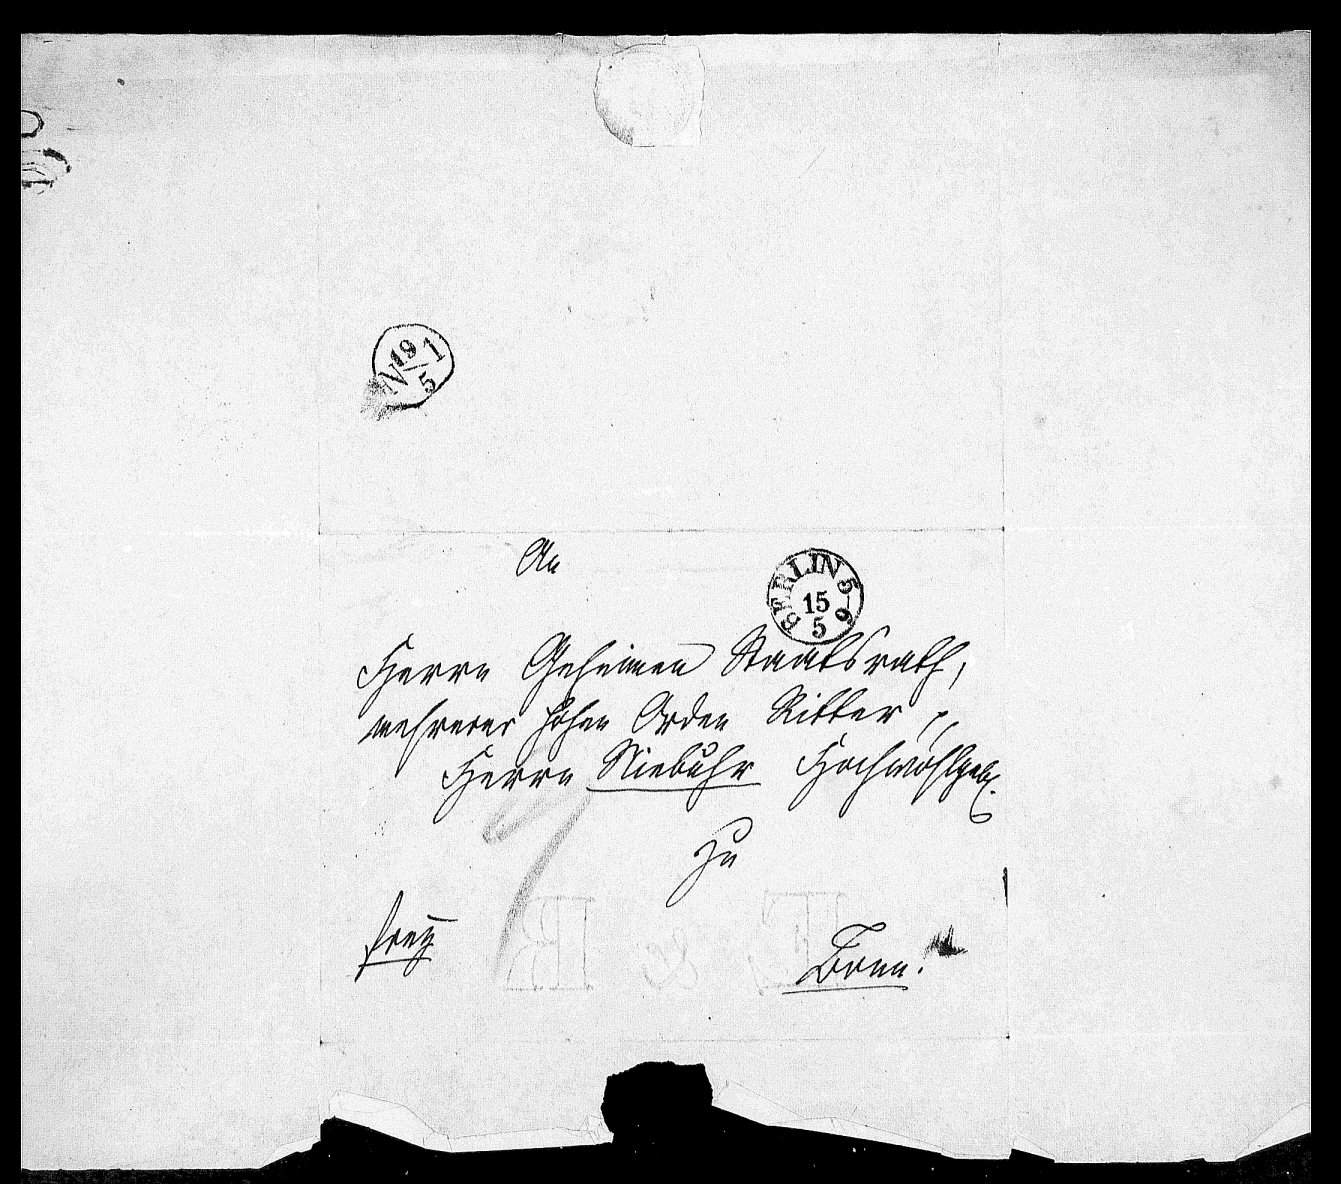 N 19/5 1
An
BERLIN 5-6
15
5
Herrn Geheimen Staatsrath,
mehrerer hohen Orden Ritter,
Herrn Niebuhr Hochwohlgeb.
zu
frey
Bonn.